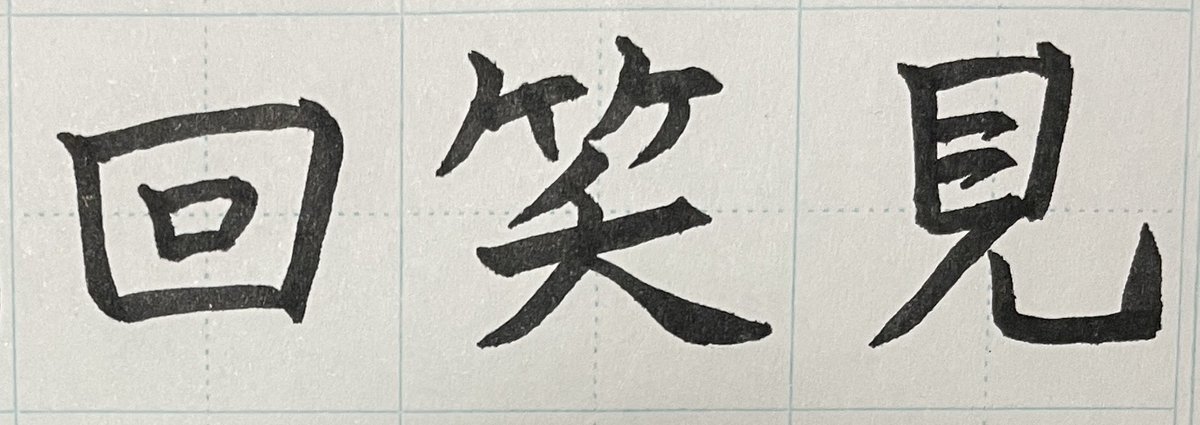 回笑見